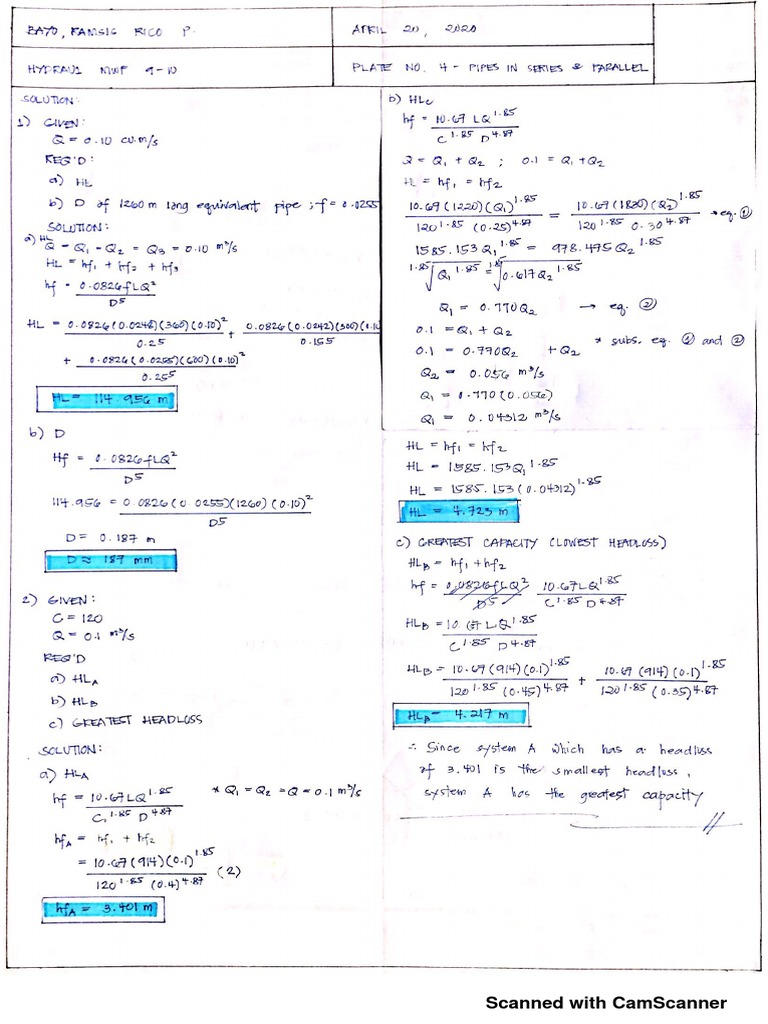 BAYO, FAMSIG RICO P.
APRIL 20, 2020
HYDRAU1 MWF 9-10
PLATE NO. 4 - PIPES IN SERIES & PARALLEL
SOLUTION:
1) GIVEN:
Q = 0.10 cu.m/s
REQ'D:
a) HL
b) D of 1260 m long equivalent pipe ; f = 0.0255
SOLUTION:
a) HL
Q = Q1 = Q2 = Q3 = 0.10 m³/s
HL = hf1 + hf2 + hf3
hf = 0.0826fLQ² / D⁵
HL = 0.0826(0.0248)(360)(0.10)² / 0.2⁵ + 0.0826(0.0242)(300)(0.10 / 0.15⁵
+ 0.0826(0.0255)(600)(0.10)² / 0.25⁵
HL = 114.956 m
b) D
Hf = 0.0826fLQ² / D⁵
114.956 = 0.0826(0.0255)(1260)(0.10)² / D⁵
D = 0.187 m
D ≈ 187 mm
2) GIVEN:
C = 120
Q = 0.1 m³/s
REQ'D
a) HLA
b) HLB
c) GREATEST HEADLOSS
SOLUTION:
a) HLA
hf = 10.67LQ^1.85 / C^1.85 D^4.87 * Q1 = Q2 = Q = 0.1 m³/s
hfA = hf1 + hf2
= 10.67(914)(0.1)^1.85 / 120^1.85 (0.4)^4.87 (2)
hfA = 3.401 m
b) HLC
hf = 10.67 LQ^1.85 / C^1.85 D^4.87
Q = Q1 + Q2 ; 0.1 = Q1 + Q2
HL = hf1 = hf2
10.67(1220)(Q1)^1.85 / 120^1.85 (0.25)^4.87 = 10.67(1830)(Q2)^1.85 / 120^1.85 0.30^4.87 → eq. ①
1585.153Q1^1.85 = 978.475Q2^1.85
1.85√Q1^1.85 = 1.85√0.617Q2^1.85
Q1 = 0.770Q2 → eq. ②
0.1 = Q1 + Q2
0.1 = 0.770Q2 + Q2 * subs. eq. ① and ②
Q2 = 0.056 m³/s
Q1 = 0.770(0.056)
Q1 = 0.04312 m³/s
HL = hf1 = hf2
HL = 1585.153Q1^1.85
HL = 1585.153(0.04312)^1.85
HL = 4.723 m
c) GREATEST CAPACITY (LOWEST HEADLOSS)
HLB = hf1 + hf2
hf = 0.0826fLQ² / D⁵ 10.67LQ^1.85 / C^1.85 D^4.87
HLB = 10.67LQ^1.85 / C^1.85 D^4.87
HLB = 10.67(914)(0.1)^1.85 / 120^1.85 (0.45)^4.87 + 10.67(914)(0.1)^1.85 / 120^1.85 (0.35)^4.87
HLB = 4.217 m
∴ Since system A which has a headloss
of 3.401 is the smallest headloss,
system A has the greatest capacity
Scanned with CamScanner